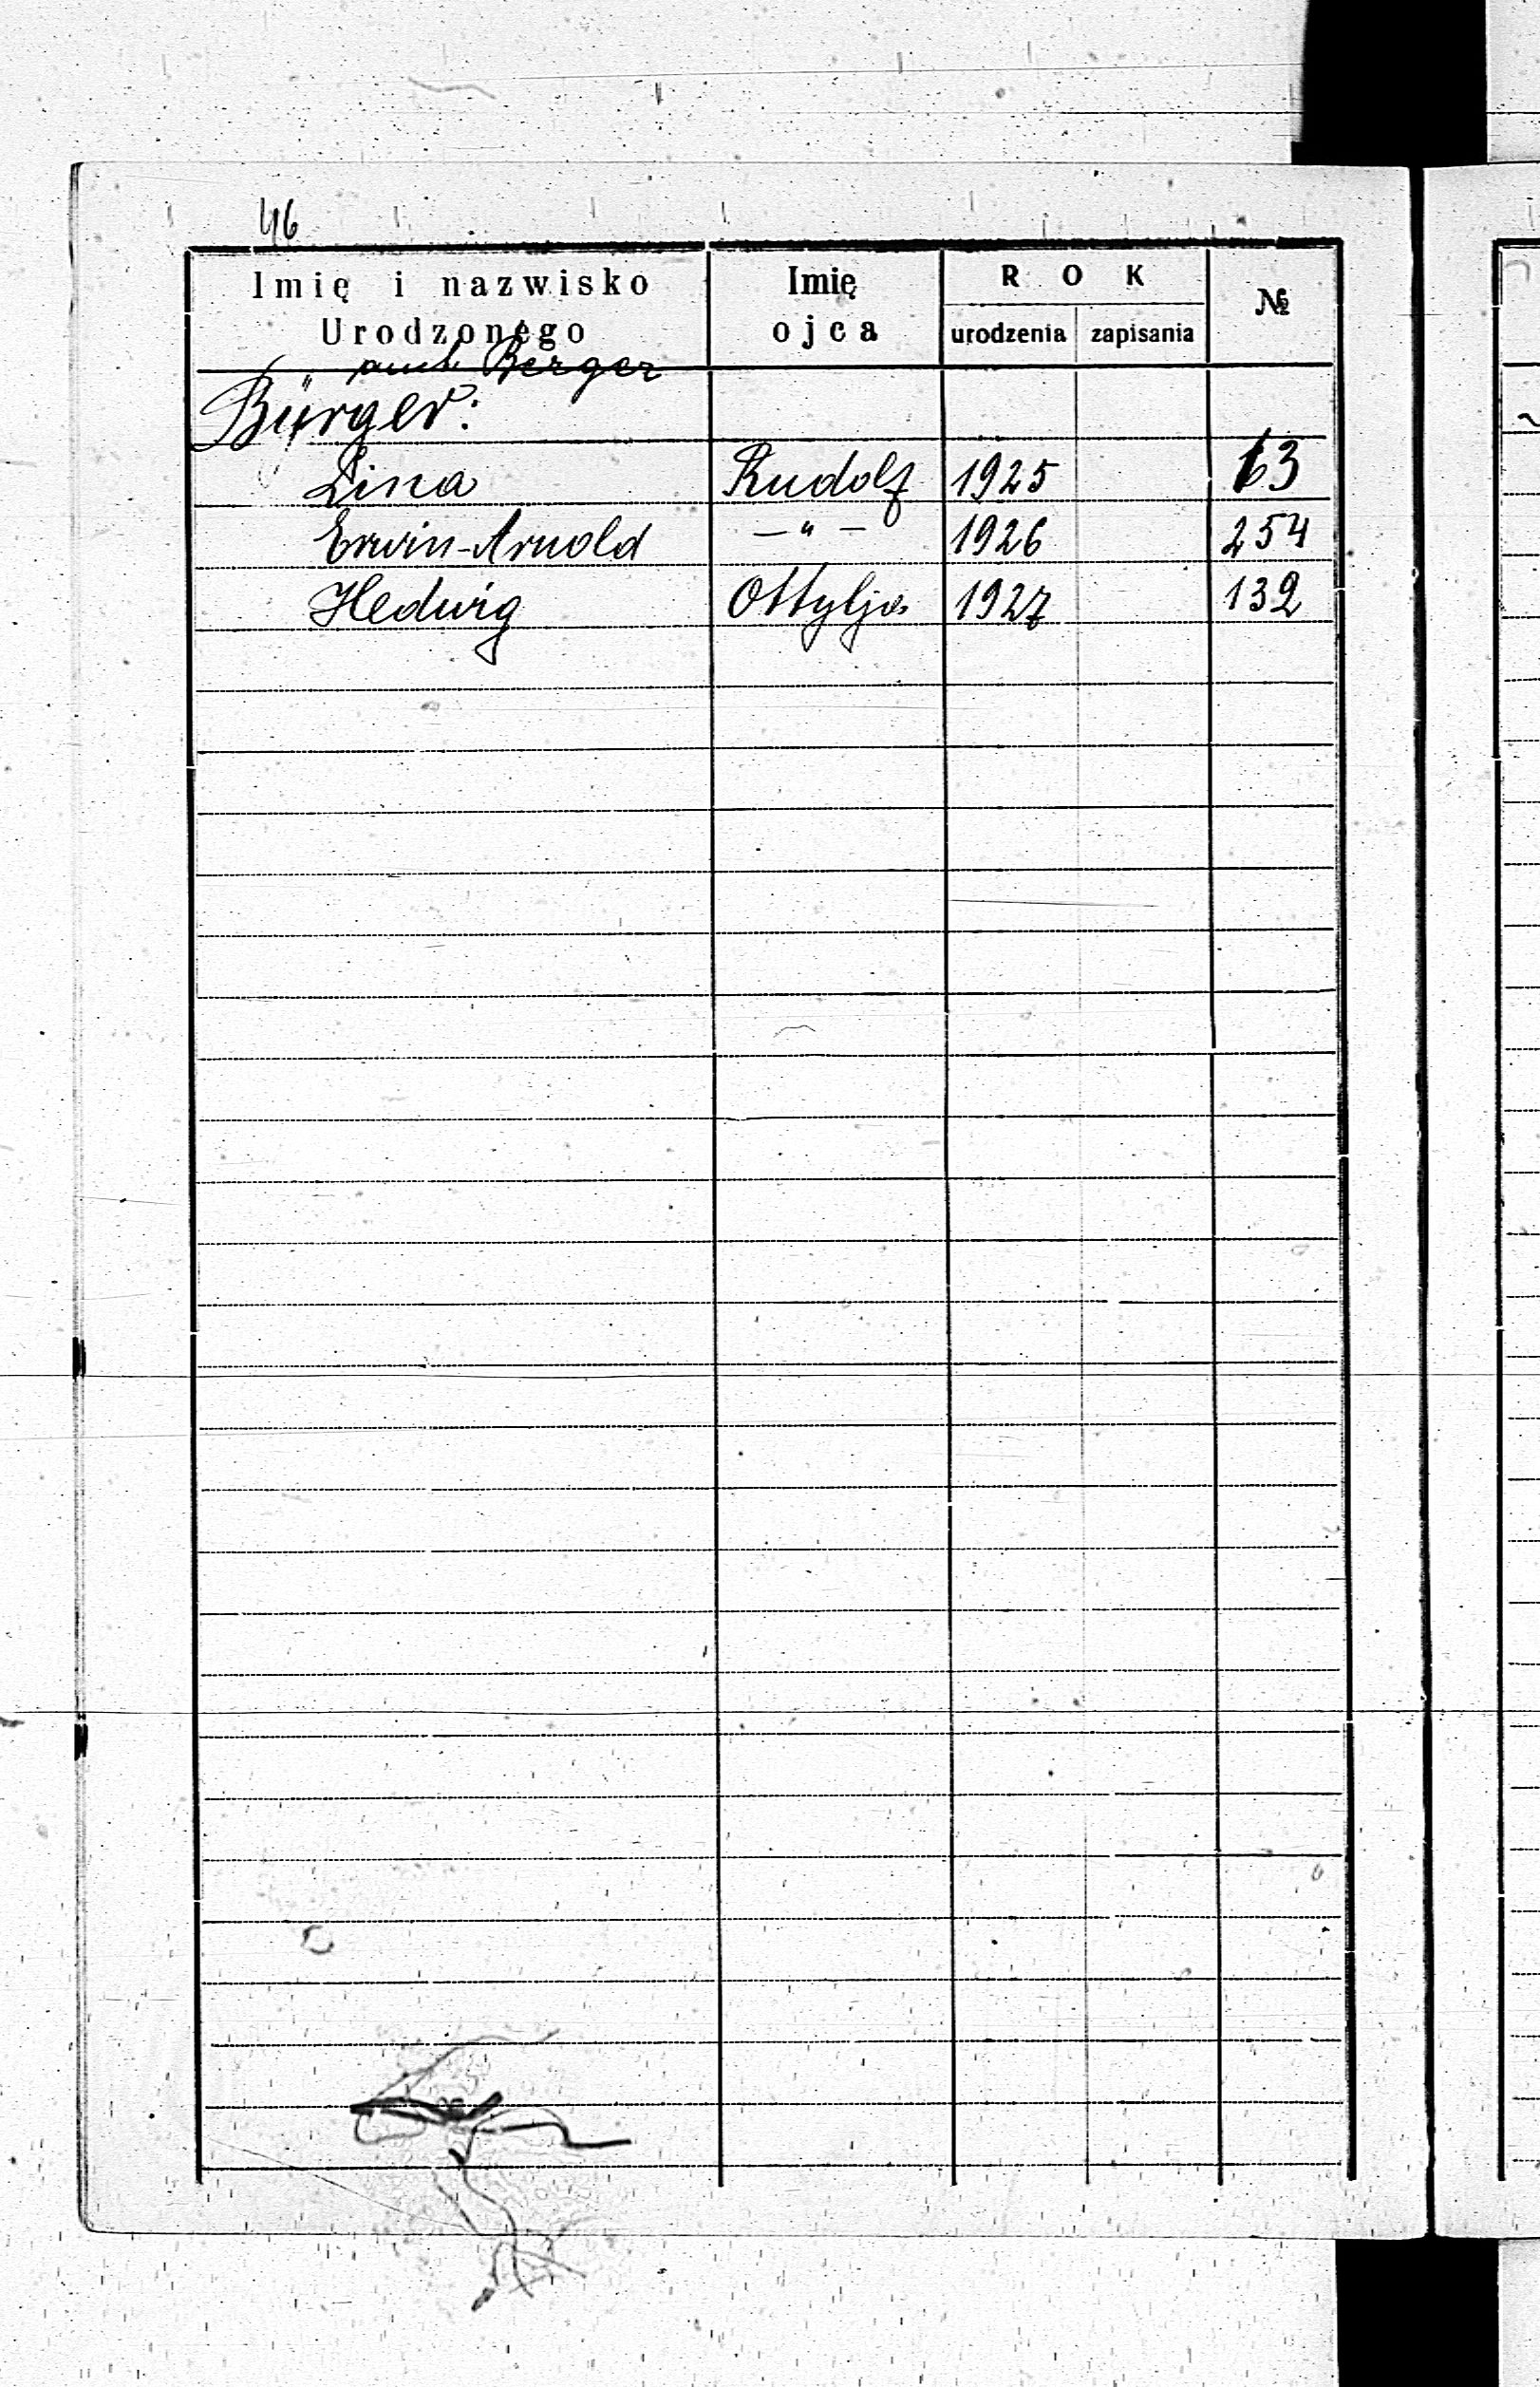 46
Imię i nazwisko Urodzonego
Imię ojca
ROK
urodzenia zapisania
№
auch Berger
Bürger:
Lina Rudolf 1925 63
Erwin-Arnold —"— 1926 254
Hedwig Ottylja 1927 132